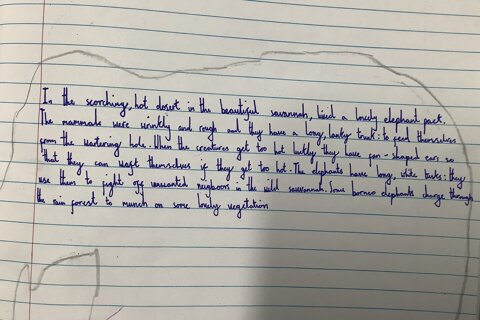 In the scorching, hot desert in the beautiful savannah, lived a lovely elephant pack.
The mammals were wrinkly and rough and they have a long, lanky trunk: to feed themselves
from the watering hole. When the creatures get too hot luckily they have fan-shaped ears so
that they can waft themselves if they get too hot. The elephants have long, white tusks: they
use them to fight off unwanted neighbors in the wild savannah. Some borneo elephants charge through
the rain forest to munch on some lovely vegetation